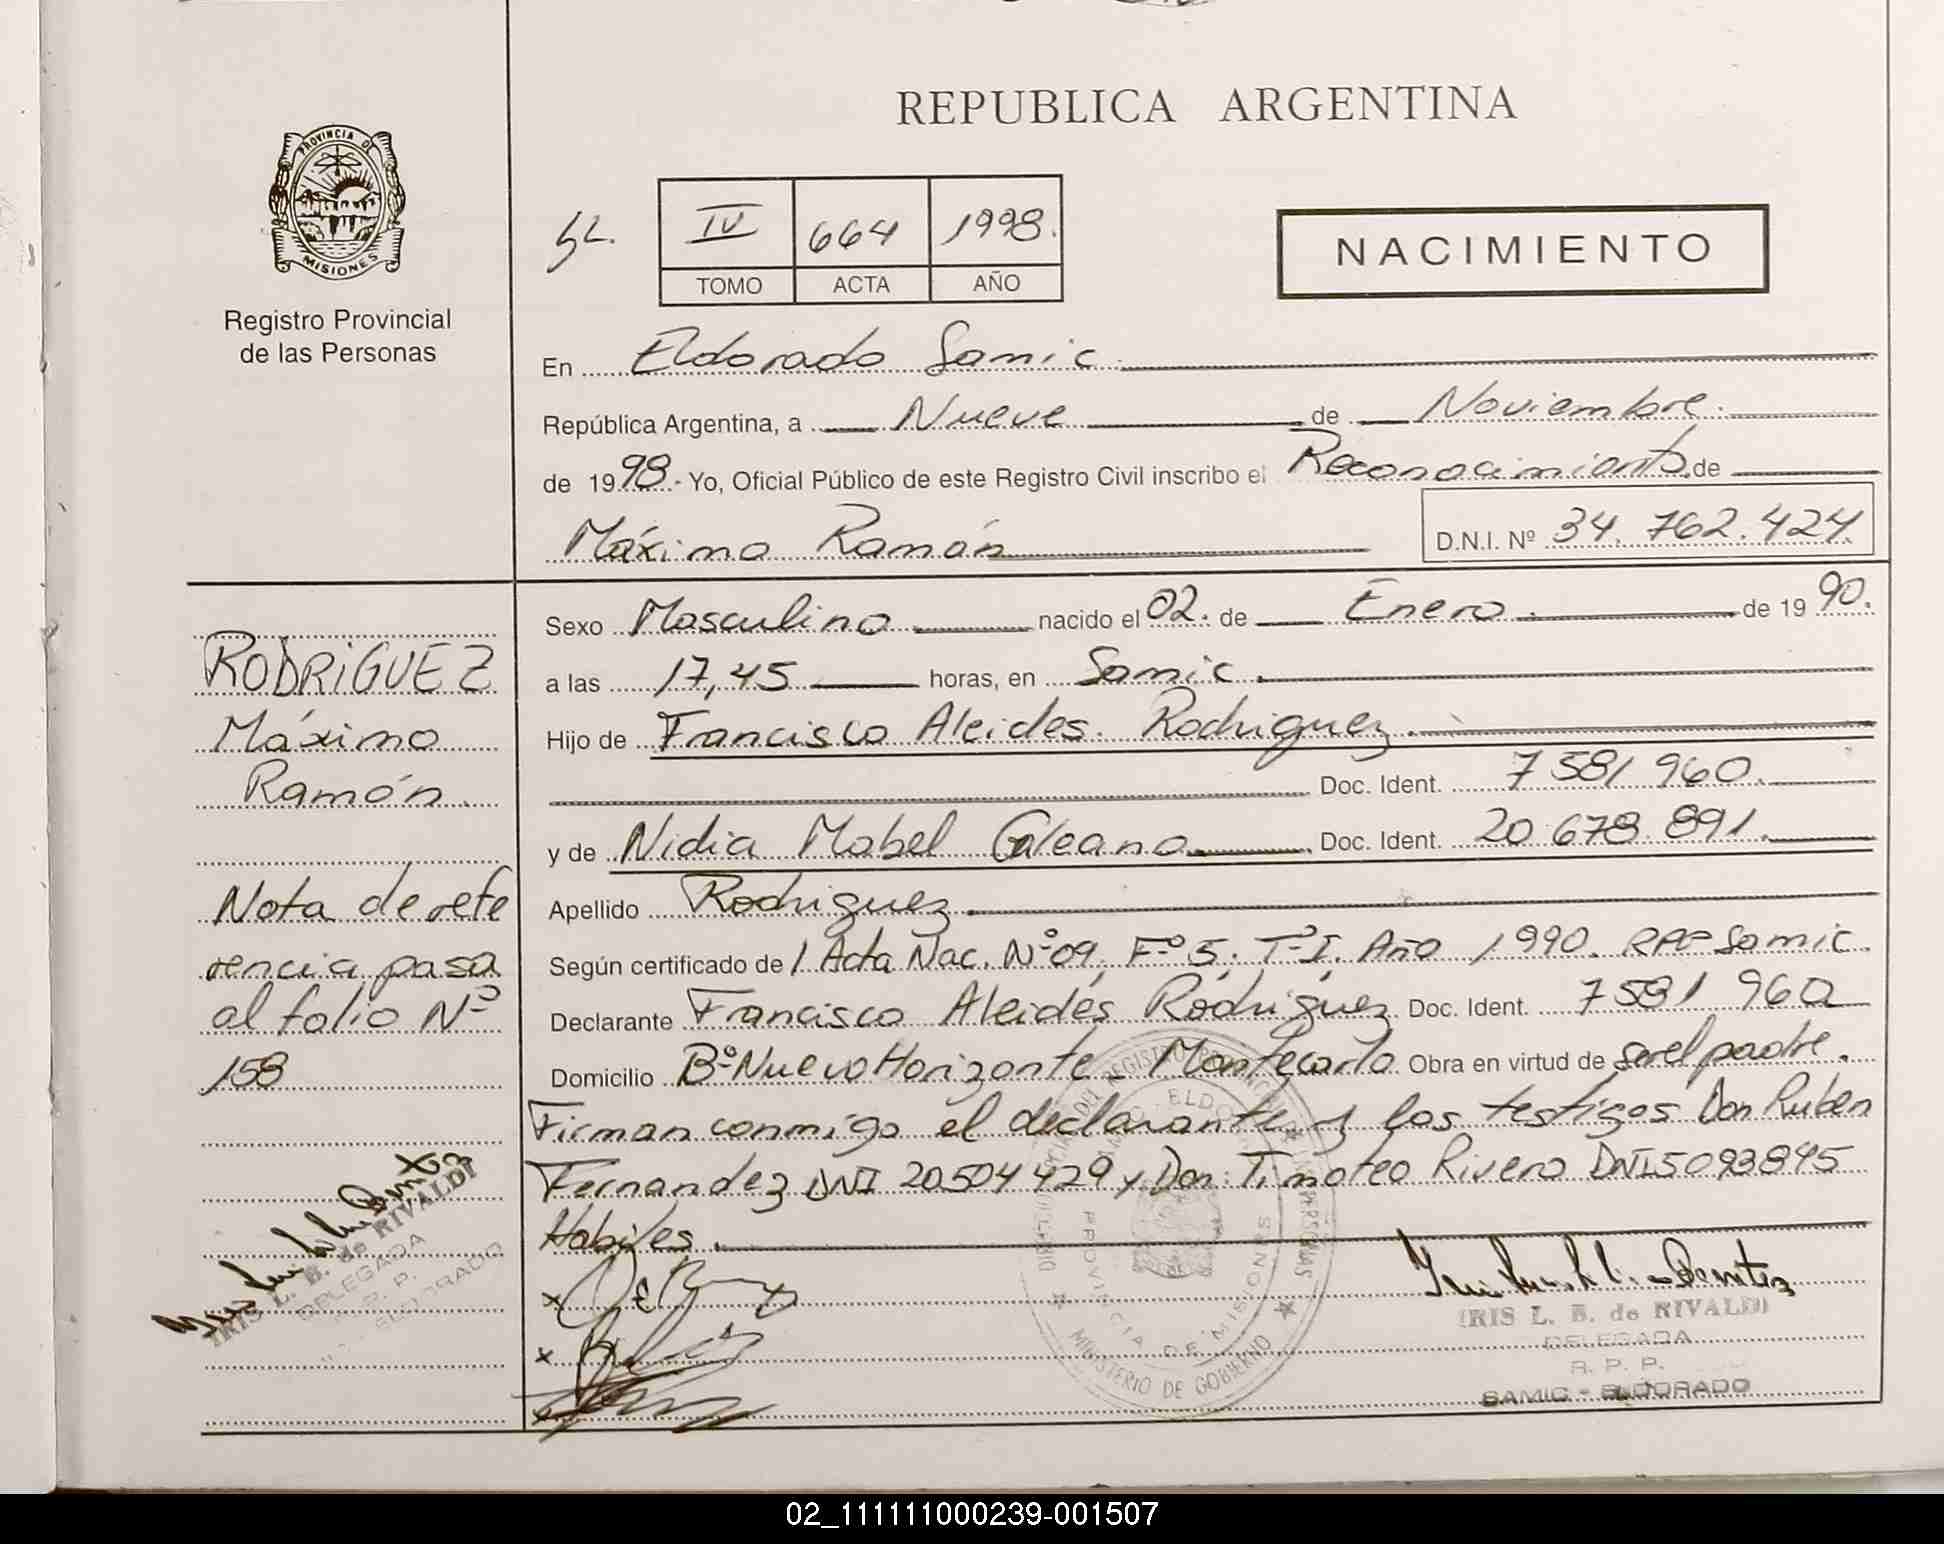 REPUBLICA ARGENTINA
PROVINCIA DE
MISIONES
Registro Provincial
de las Personas
IV 664 1998.
TOMO ACTA AÑO
NACIMIENTO
En Eldorado Samic.
República Argentina, a Nueve de Noviembre.
de 1998.- Yo, Oficial Público de este Registro Civil inscribo el Reconocimiento de
Máximo Ramón D.N.I. Nº 34.762.424
Sexo Masculino nacido el 02. de Enero. de 1990.
a las 17,45 horas, en Samic.
Hijo de Francisco Aleides. Rodriguez.
Doc. Ident. 7 581 960.
y de Nidia Mabel Galeano. Doc. Ident. 20 678 891.
Apellido Rodriguez
Según certificado de 1 Acta Nac. Nº 09, Fº 5. Tº I. Año 1990. RPP Samic.
Declarante Francisco Aleides Rodriguez Doc. Ident. 7 581 960
Domicilio Bº Nuevo Horizonte - Montecarlo Obra en virtud de ser el padre.
Firman conmigo el declarante y los testigos Don Ruben
Fernandez DNI 20504429 y Don: Timoteo Rivero DNI 5093845
Habiles.
RODRIGUEZ
Máximo
Ramón.
Nota de refe
rencia pasa
al folio Nº
158
IRIS L. B. de RIVALDI
DELEGADA
R. P.
ELDORADO
IRIS L. B. de RIVALDI
DELEGADA
R. P. P.
SAMIC - ELDORADO
PROVINCIA DE MISIONES
MINISTERIO DE GOBIERNO
02_111111000239-001507